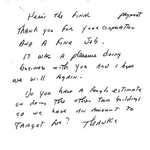 Here's the final payment
Thank you for your cooperation
AND A Fine Job.
IT WAS A pleasure doing
business with you and I hope
we will Again.
Do you have A Rough estimate
on doing the other two buildings
so we have AN AMOUNT TO
TARGET for? Thanks